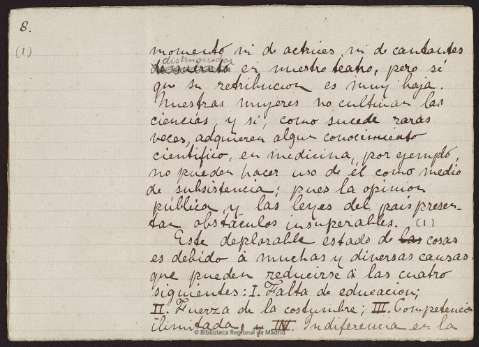 8.
(1)
momento ni de actrices, ni de cantantes
distinguidos
en nuestro teatro, pero sí
que su retribucion es muy baja.
Nuestras mujeres no cultivan las
ciencias, y si, como sucede raras
veces, adquieren algun conocimiento
científico, en medicina, por ejemplo,
no pueden hacer uso de él como medio
de subsistencia; pues la opinion
pública, y las leyes del pais presen-
tan obstáculos insuperables. (1)
Este deplorable estado de las cosas
es debido à muchas y diversas causas
que pueden reducirse à las cuatro
siguientes: I. Falta de educacion;
II. Fuerza de la costumbre; III. Competencia
ilimitada, y IV. Indiferencia en la
© Biblioteca Regional de Madrid